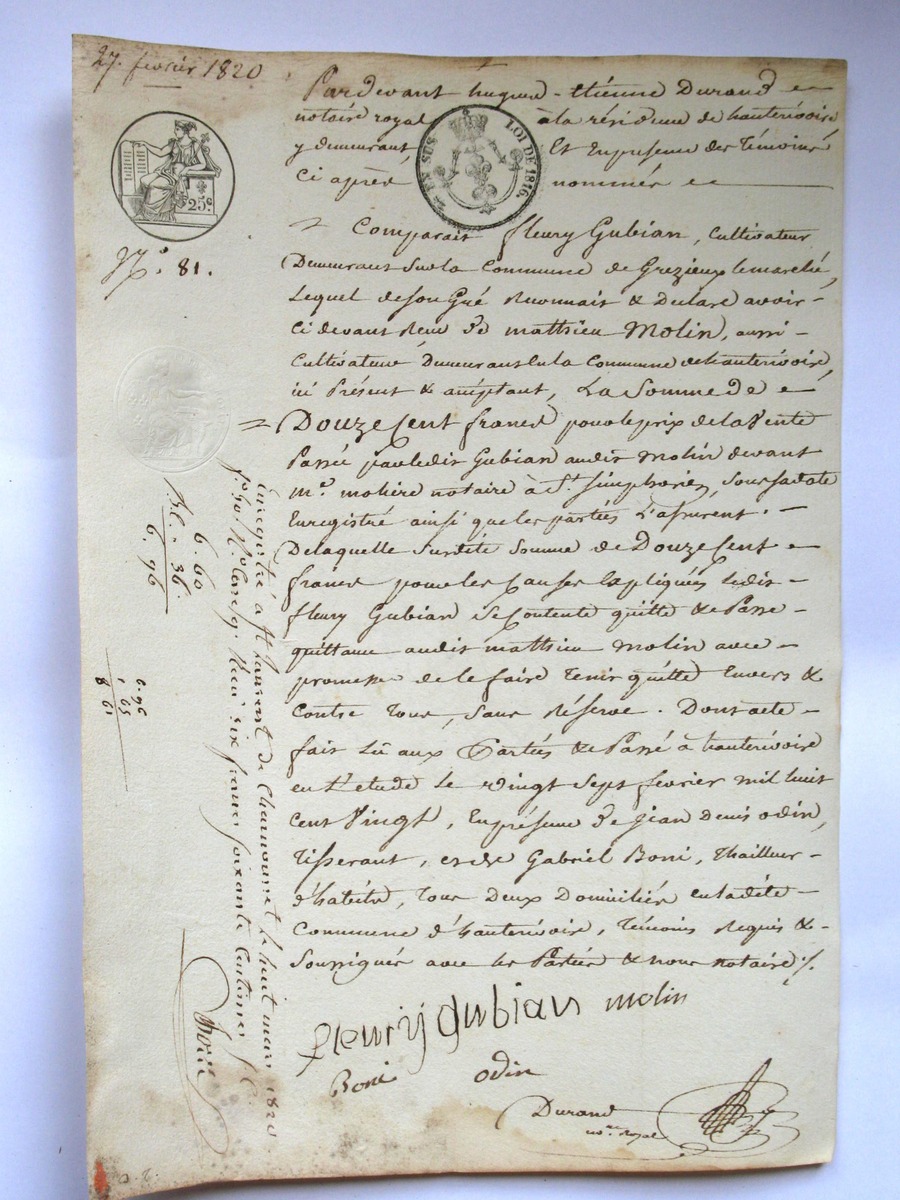 27. fevrier 1820
Pardevant hugues-étienne Durand
notaire royal à la résidence de hauterivoire
y demeurant Et En présence des Témoins
Ci après nommés
EN SUS LOI DE 1816.
25c
N.° 81.
Comparait fleury Gubian, Cultivateur
Demeurant sur la Commune de Grezieux le marché,
Lequel de son Gré Reconnait & Declare avoir
Ci devant Recu De mathieu Molin, aussi
Cultivateur Demeurant En la Commune de hauterivoire,
ici Présent & acceptant, La Somme de
Douze Cent francs pour le prix de la Vente
Passée par ledit Gubian audit Molin devant
m.e moliere notaire à S.t Simphorien, sous sa date
Enregistré ainsi que les parties L'assurent.
De laquelle susdite Somme de Douze Cent
francs pour les Causes Expliquées Ledit
fleury Gubian se Contente quitte & Passe
quittance audit mathieu Molin avec
promesse de le faire Tenir quitte Envers &
Contre Tous, Sans Réserve. Dont acte
fait Lu aux Parties & Passé à hauterivoire
en L'etude le vingt Sept fevrier mil huit
Cent Vingt, En présence De jean Denis odin,
Tisserant, et de Gabriel Boni, Thailleur
d'habits, Tous Deux Domiciliés en ladite
Commune d'hauterivoire, Témoins Requis &
Soussignés avec les Parties & nous notaire ./.
fleury gubian molin
Boni odin
Durand
no.re Royal
Enregistré a St Laurent de Chamousset le huit mars 1820
Recu six francs soixante Centimes
6. 60
36.
6. 96
6. 96
1 65
8 61